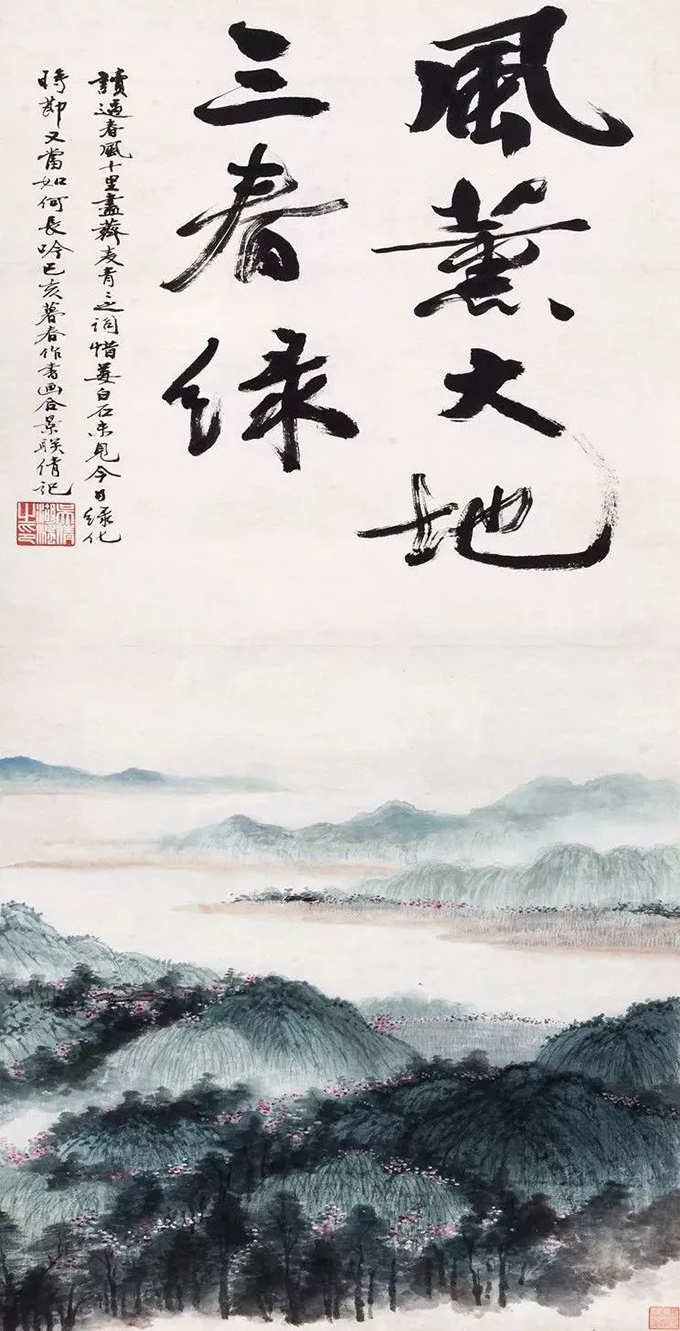 風薰大地
三春绿
讀過春風十里盡薺麦青之詞惜姜白石未見今日绿化
時節又當如何長吟己亥暮春作書画合景联倩記